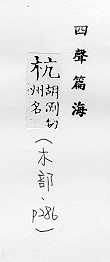 四聲篇海
杭
胡剛切
州名
(木部、p286)